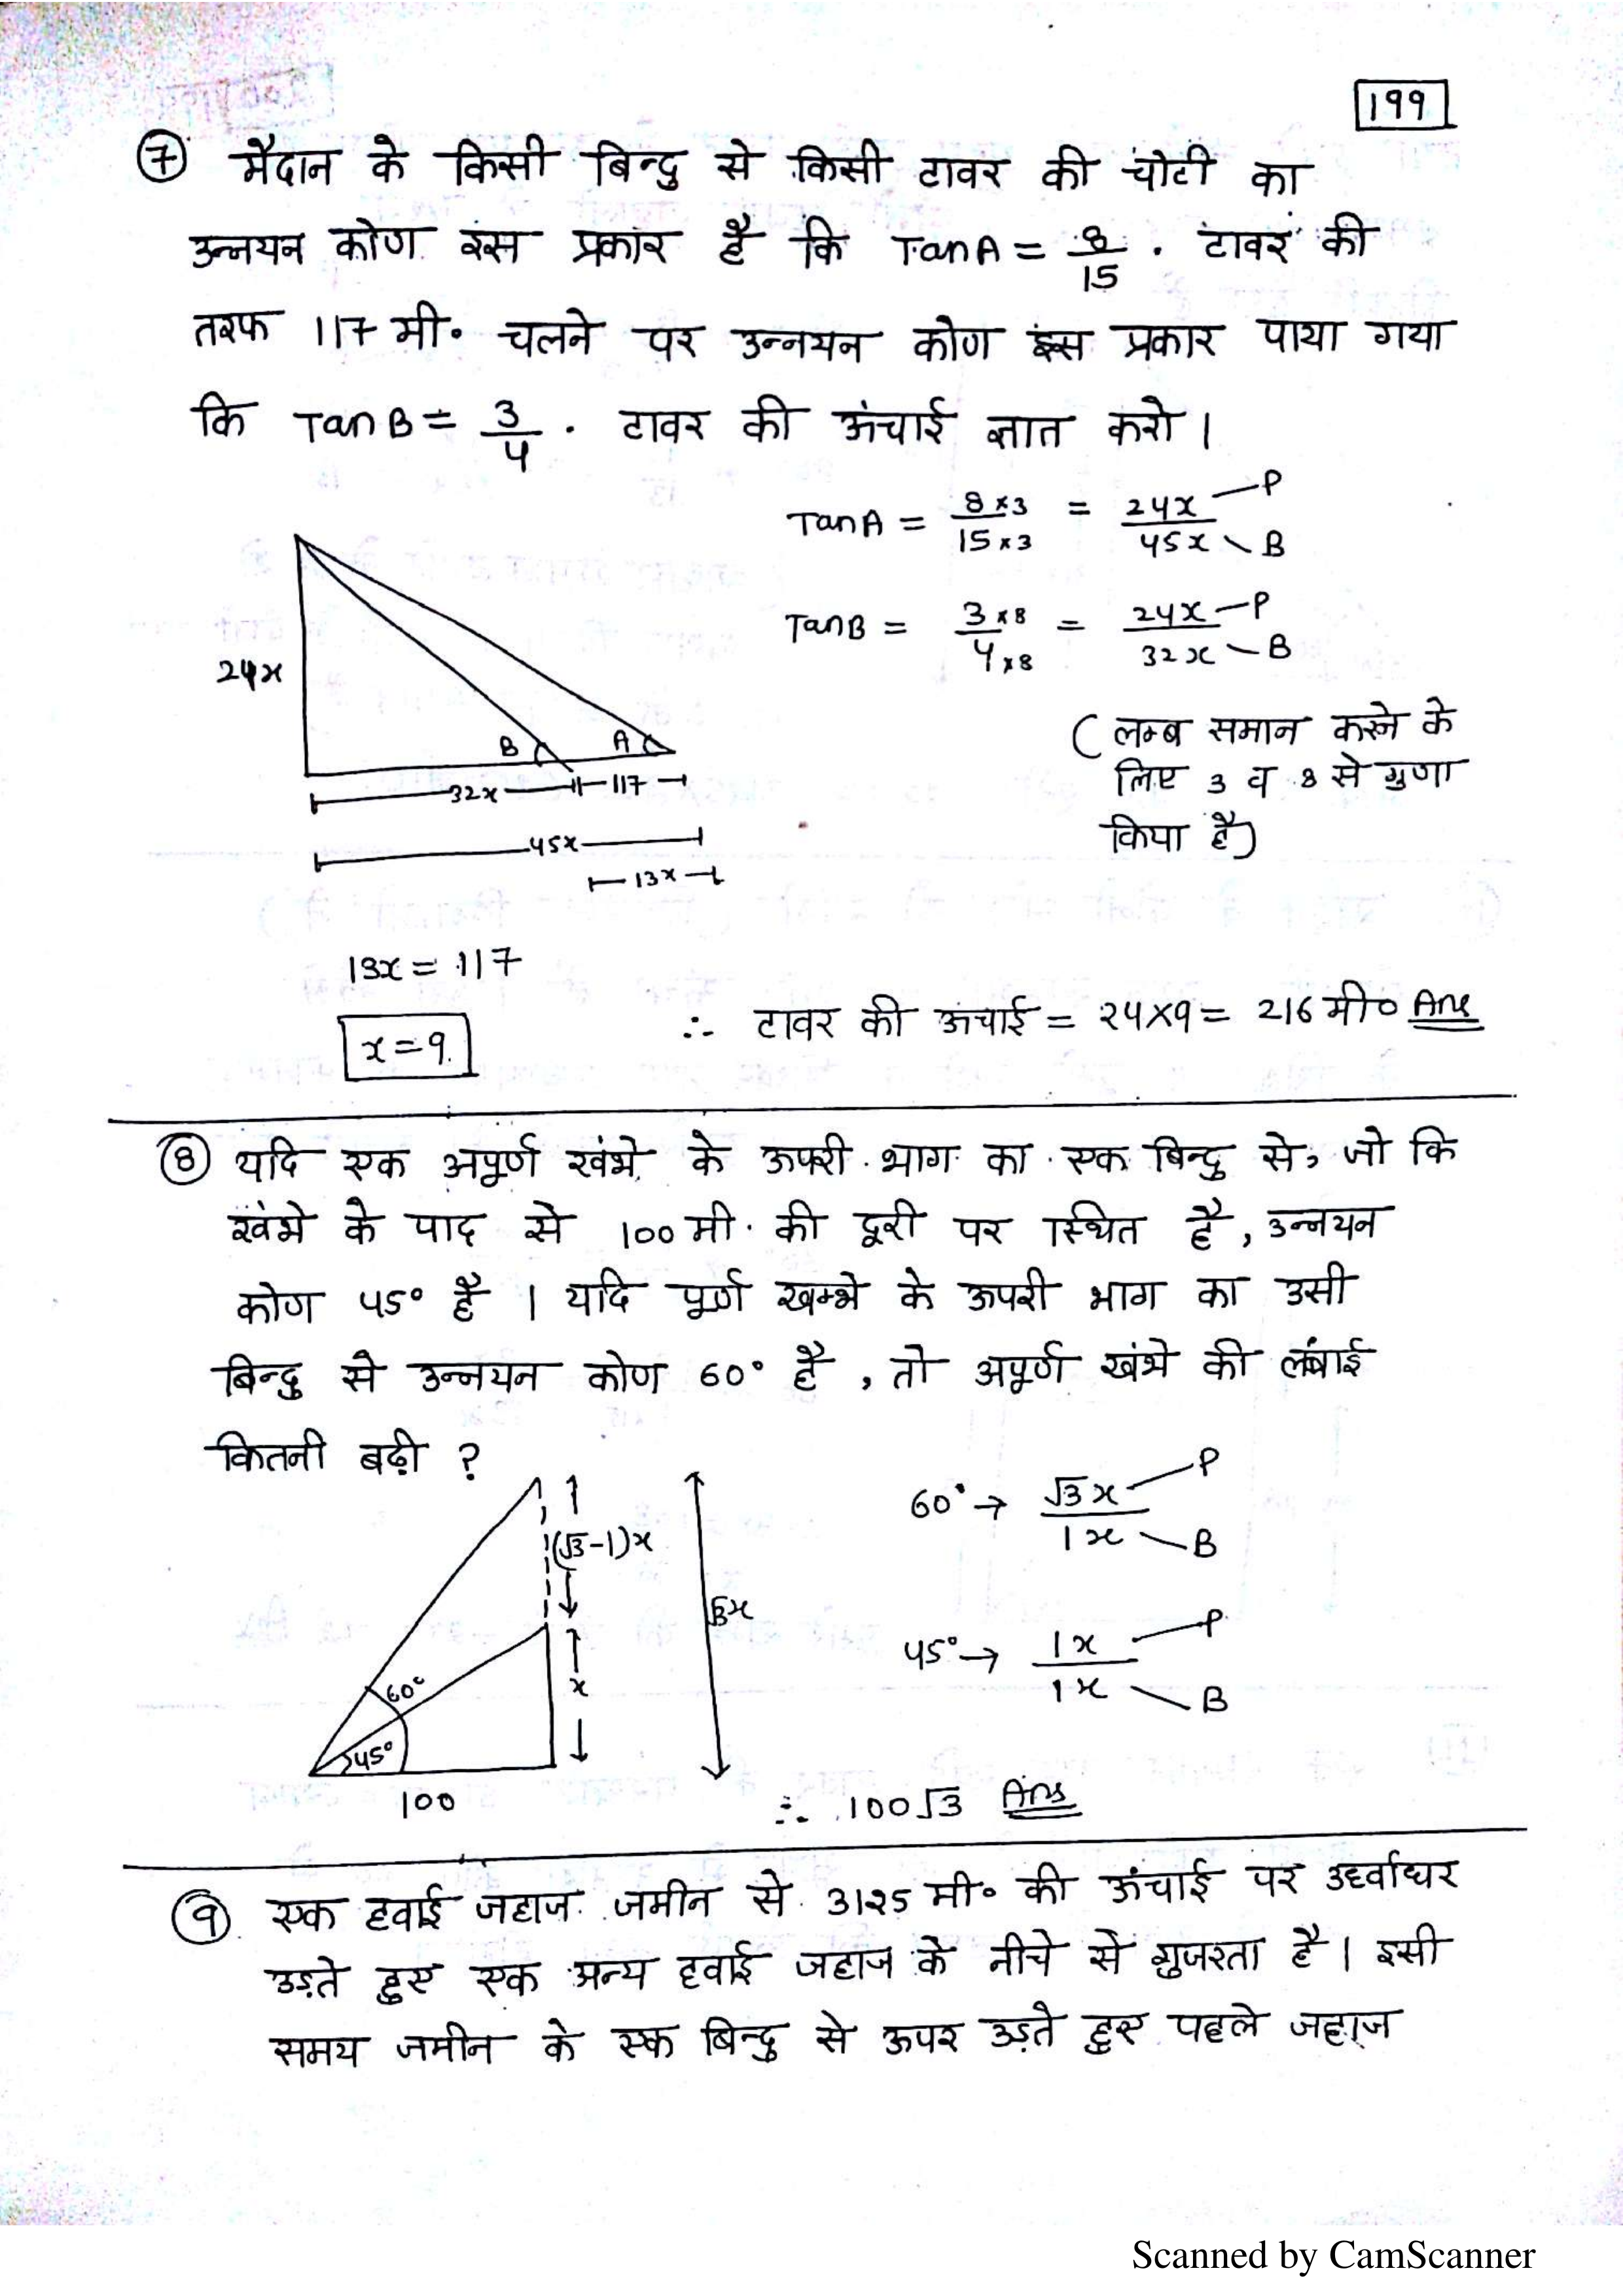 199
⑦ मैदान के किसी बिन्दु से किसी टावर की चोटी का
उन्नयन कोण इस प्रकार है कि TanA = 8/15 . टावर की
तरफ 117 मी० चलने पर उन्नयन कोण इस प्रकार पाया गया
कि TanB = 3/4 . टावर की ऊंचाई ज्ञात करो।
TanA = 8×3/15×3 = 24x/45x P B
TanB = 3×8/4×8 = 24x/32x P B
(लम्ब समान करने के
लिए 3 व 8 से गुणा
किया है)
24x
B A
32x 117
45x
13x
13x = 117
x = 9
∴ टावर की ऊंचाई = 24×9 = 216 मी० Ans
⑧ यदि एक अपूर्ण खंभे के ऊपरी भाग का एक बिन्दु से, जो कि
खंभे के पाद से 100 मी. की दूरी पर स्थित है, उन्नयन
कोण 45° है । यदि पूर्ण खम्भे के ऊपरी भाग का उसी
बिन्दु से उन्नयन कोण 60° है, तो अपूर्ण खंभे की लंबाई
कितनी बढ़ी ?
60° → √3x/1x P B
45° → 1x/1x P B
(√3-1)x
√3x
x
60°
45°
100
∴ 100√3 Ans
⑨ एक हवाई जहाज जमीन से 3125 मी० की ऊंचाई पर उर्ध्वाधर
उड़ते हुए एक अन्य हवाई जहाज के नीचे से गुजरता है। इसी
समय जमीन के एक बिन्दु से ऊपर उड़ते हुए पहले जहाज
Scanned by CamScanner